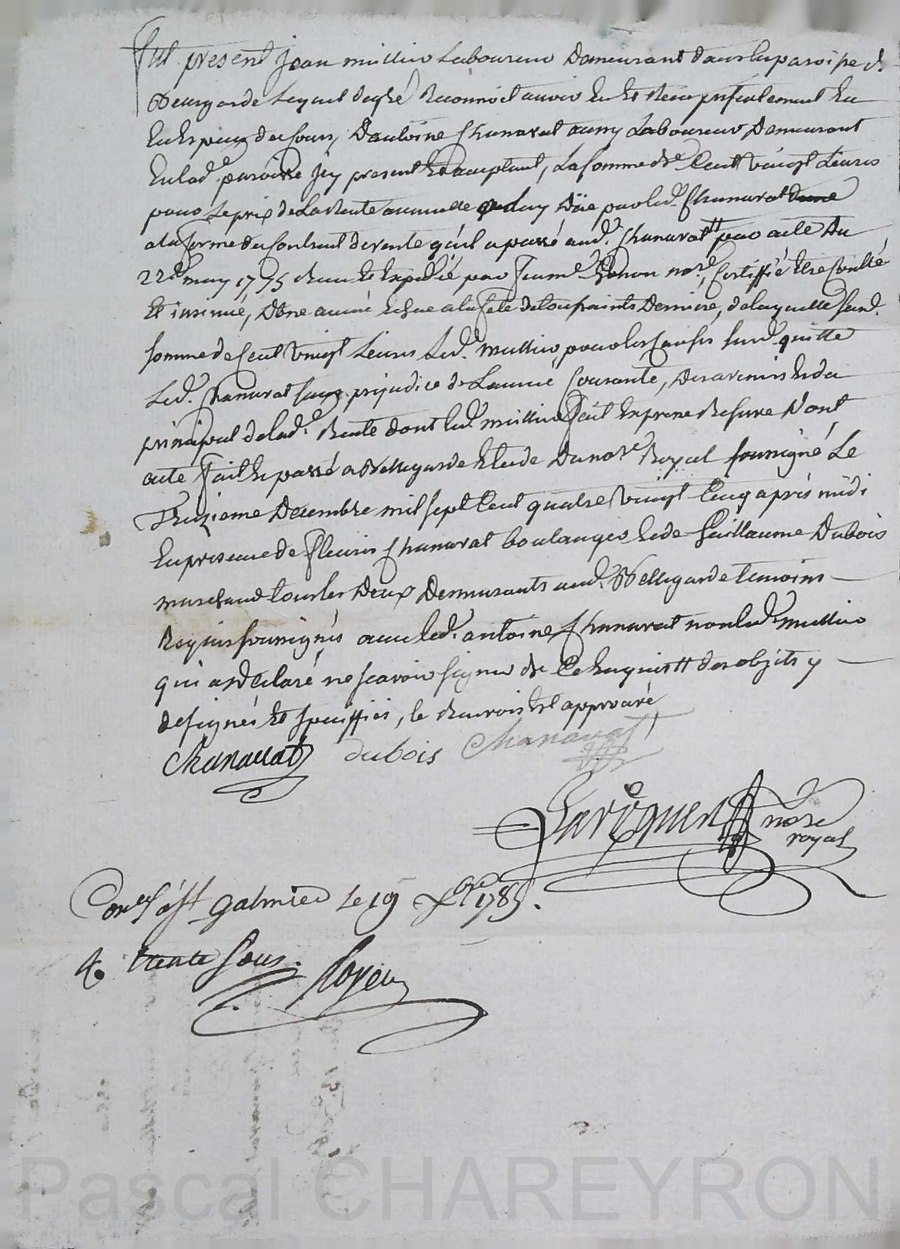 fut present jean mullier Laboureur Demeurant dans la paroisse de
Bellegarde Lequel de gré Reconnoit avoir eu et recu presentement en
en especes de Cours, D'antoine Chanavat aussy Laboureur Demeurant
en lad. paroisse jcy present et acceptant, La somme de Cent vingt Livres
pour Le prix de La Rente annuelle Düe par led. Chanavat
a la forme du Contrat de vente qu'il a passé aud. Chanavat par acte du
22 may 1775 Reçu et Expedié par nore, Certiffié Controllé
et insinué, D'une année Echue a la fete de toussaints Derniere, de laquelle susd.
somme de Cent vingt Livres Led. mullier, pour les causes susd. quitte
Led. Chanavat sans prejudice de L'année Courante, Des avenirs et du
principal de lad. Rente dont led. mullier fait Expresse Reserve Dont
acte fait et passé a Bellegarde Etude Du nore Royal soussigné Le
Decembre mil sept Cent quatre vingt Cinq après midi
En presence de fleuris Chanavat boulanger et de Guillaume Dubois
marchand tous les Deux Demeurants aud. Bellegarde temoins
Requis soussignés avec led. antoine Chanavat non led. mullier
qui a declaré ne scavoir signer de Ce Enquis des objets y
designés et speciffiés, le Renvoi est approuvé
Chanavat dubois Chanavat
nore
royal
Con.lé a St galmier le 19 Xbre 1785.
R. trente sous. Royer
Pascal CHAREYRON